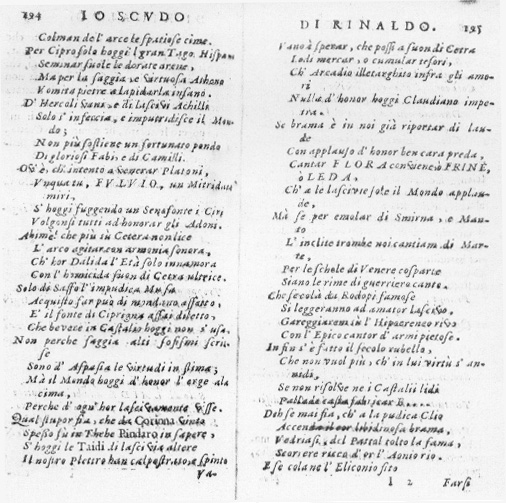 194 LO SCVDO
Colman de l'arco le spatiose cime.
Per Cipro solo hoggi l gran Tago Hispan
Seminar suole le dorate arene,
Ma per la saggia, e virtuosa Athene
Vomita pietre a lapidarla insano.
D'Hercoli vani, e di lascivi Achilli
Solo s'infeccia, e imputridisce il Mon-
do;
Non più sostiene un fortunato pondo
Di gloriosi Fabi, e di Camilli.
Ov'è, ch'intento a venerar Platoni,
Vnqua tu, FVLVIO, un Mitridate
miri,
S'hoggi fuggendo un Senafonte i Ciri
Volgonsi tutti ad honorar gli Adoni.
Ahime! che più in Cetera non lice
L'arco agitar con armonia sonora,
Ch'hor Dalida l'Età solo innamora
Con l'homicida suon di Cetra ultrice.
Solo di Saffo l'impudica Musa
Acquisto far può di mondano affetto,
E'il fonte di Ciprigna assai diletto,
Che bevere in Castalio hoggi non s'usa.
Non perche saggia alti sofismi scris-
se
Sono d'Aspasia le virtudi in stima;
Mà il Mondo hoggi d'honor l'erge a la
cima,
Perche d'ogn'hor lascivamente visse.
Qual stupor fia, che da Corinna vinto
Spesso fù in Thebe Pindaro in sapere,
S'hoggi le Taidi di lascivia altere
Il nostro Plettro han calpestrato, e spinto
Va-
DI RINALDO. 195
Vano è sperar, che possi a suon di Cetra
Lodi mercar, o cumular tesori,
Ch'Arcadio illetarghito infra gli amo-
ri
Nulla d'honor hoggi Claudiano impe-
tra.
Se brama è in noi già riportar di lau-
de
Con applauso d'honor ben cara preda,
Cantar FLORA conviene ò FRINE,
ò LEDA,
Ch'a le lascivie sole il Mondo applau-
de,
Mà se per emolar di Smirna, e Man-
to
L'inclite trombe noi cantiam di Mar-
te,
Per le schole di Venere cosparte
Siano le rime di guerriero canto.
Che se colà da Rodopi famose
Si leggeranno ad amator lascivo,
Gareggiaremo in l'Hipocrenzo rivo
Con l'Epico cantor d'armi pietose.
In fin s'è fatto il secolo rubello,
Che non vuol più, ch'in lui virtù s'an-
nidi,
Se non risolve ne i Castalii lidi
Pallade casta fabricar
Deh se mai fia, ch'a la pudica Clio
Accenda il cor libidinosa brama,
Vedriasi, del Pattol tolto la fama,
Scorrere ricco d'or l'Aonio rio.
E se colà ne l'Eliconio sito
I 2 Farsi